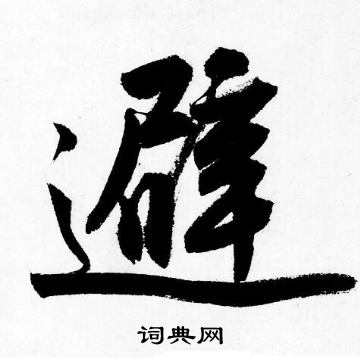 避
词典网